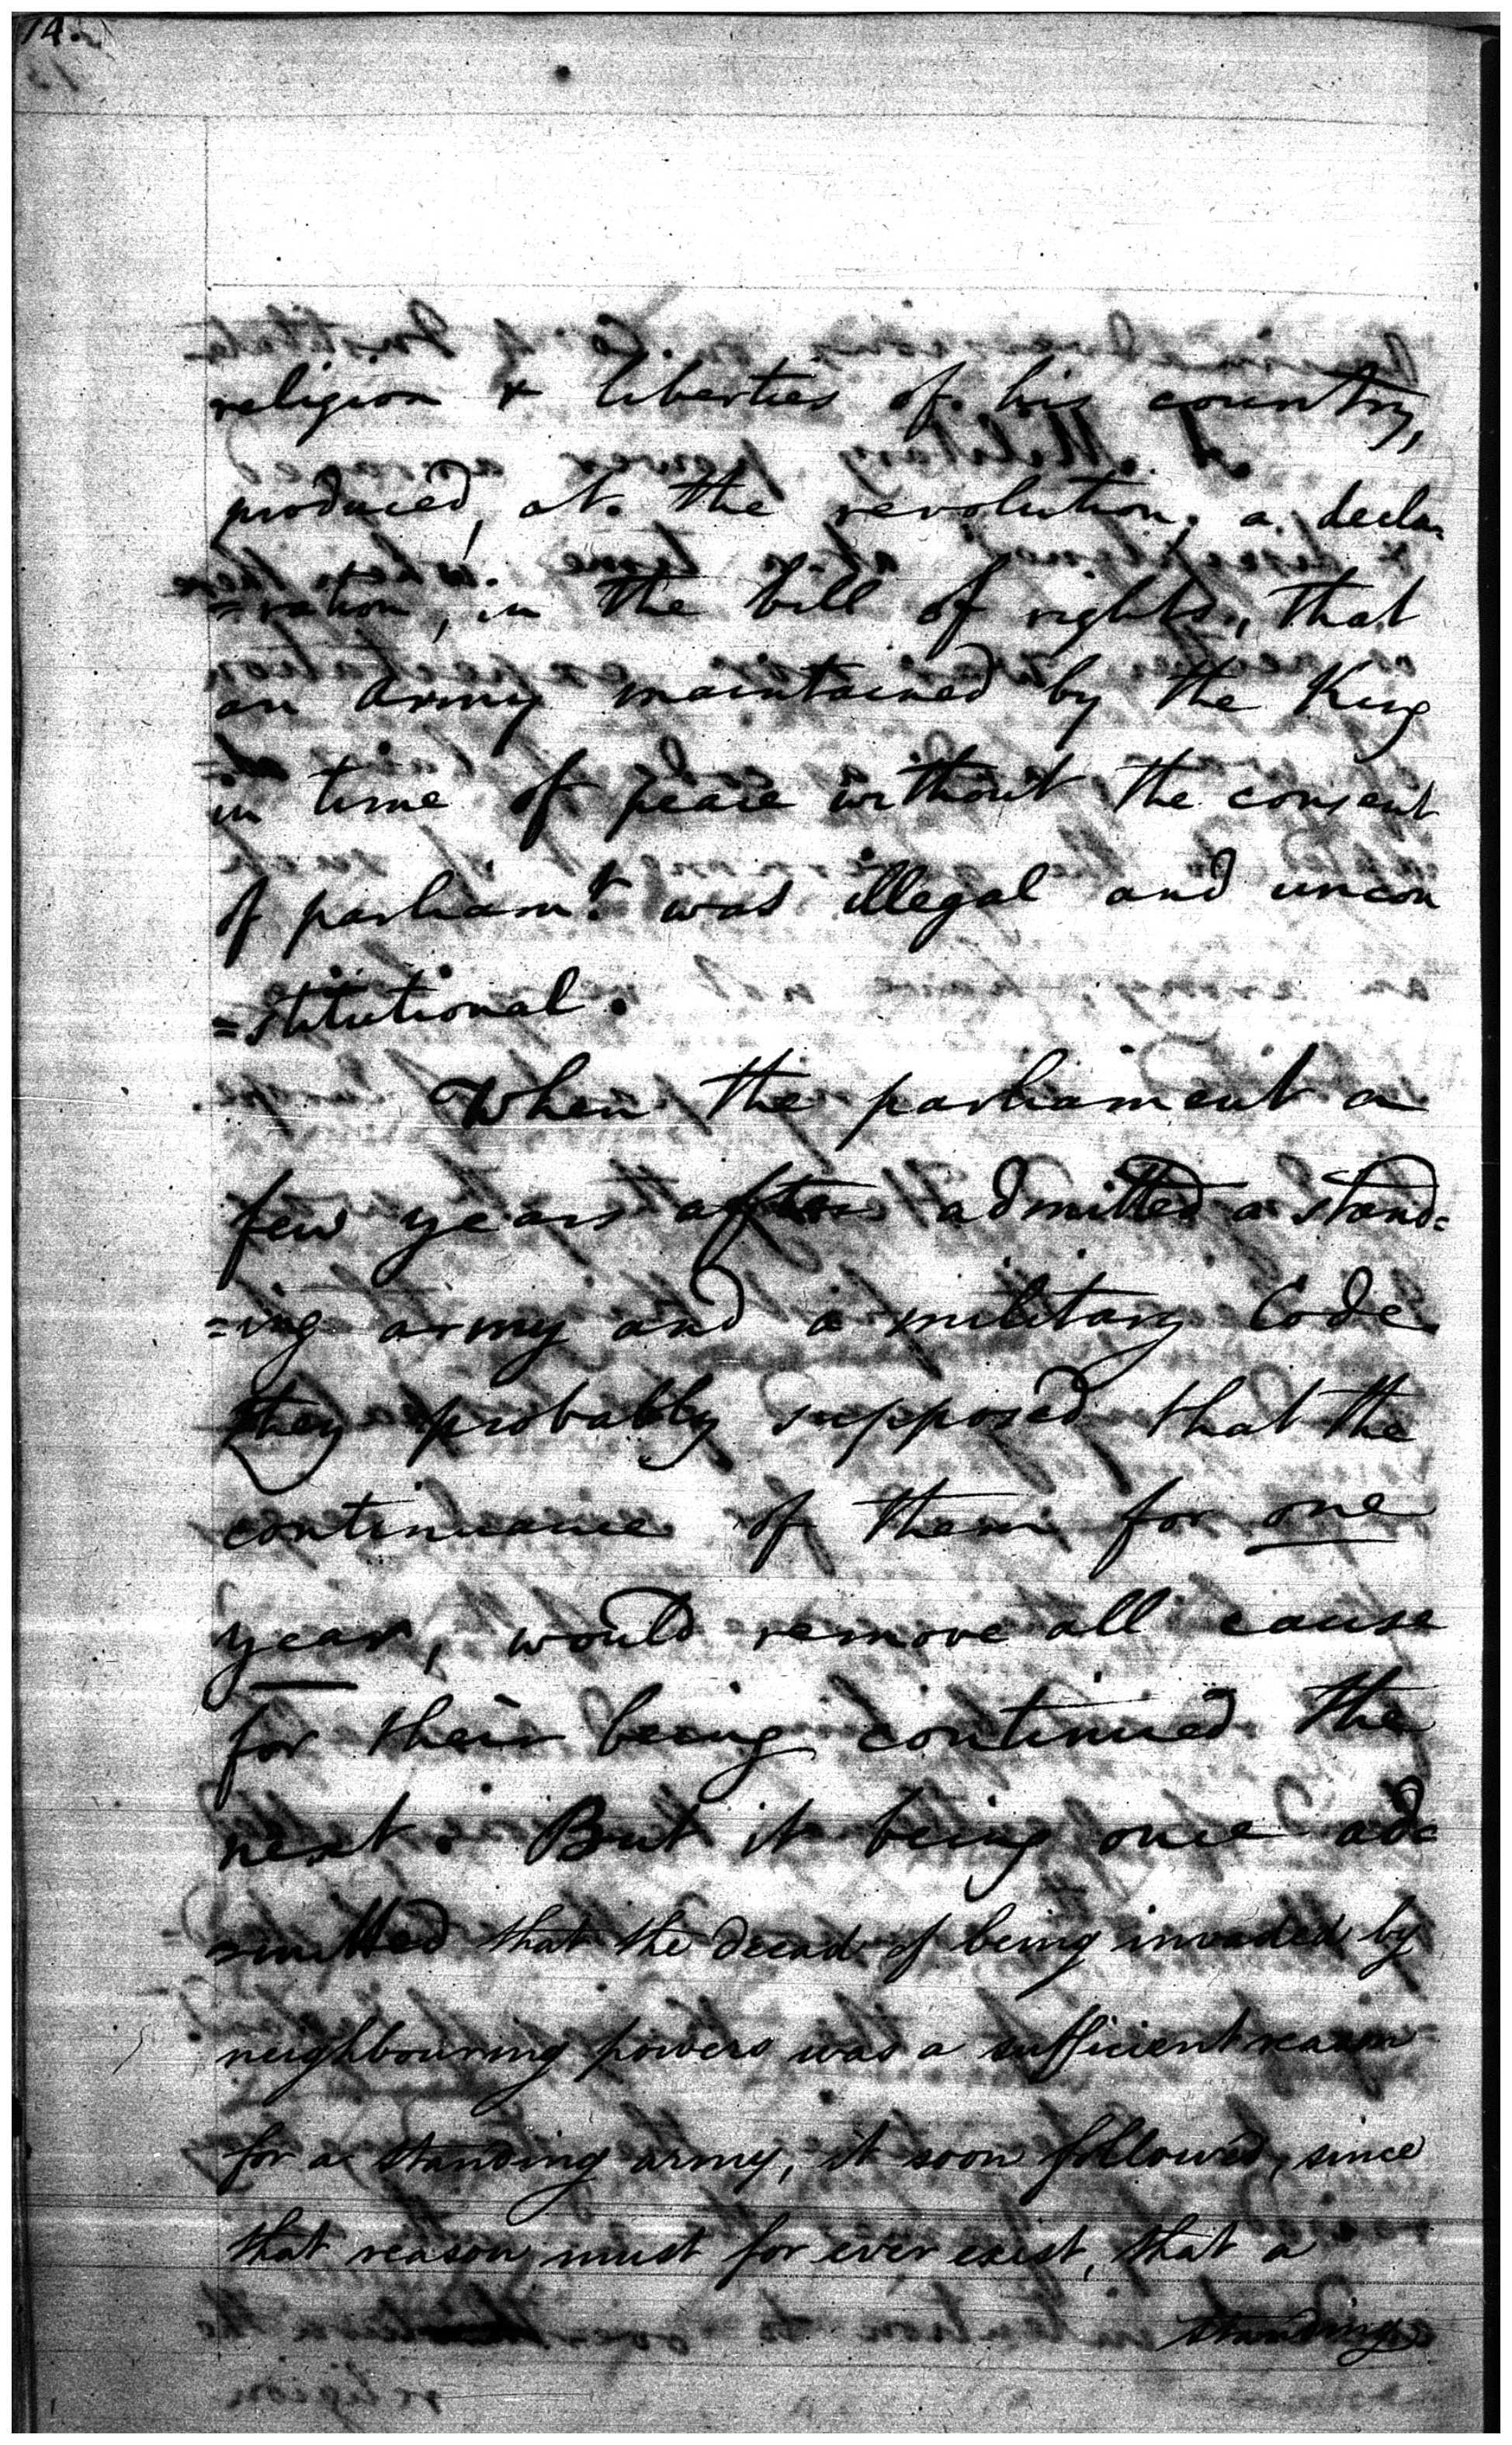 14.
religion & liberties of his country,
produced, at the revolution, a decla-
=ration, in the bill of rights, that
an army maintained by the King
in time of peace without the consent
of parliamt. was illegal and uncon
=stitutional.
When the parliament a
few years after admitted a stand=
=ing army and a military Code
they probably supposed that the
continuance of them for one
year, would remove all cause
for their being continued the
next. But it being once ad=
=mitted that the dread of being invaded by
neighbouring powers was a sufficient reason
for a standing army, it soon followed, since
that reason must for ever exist, that a
standing